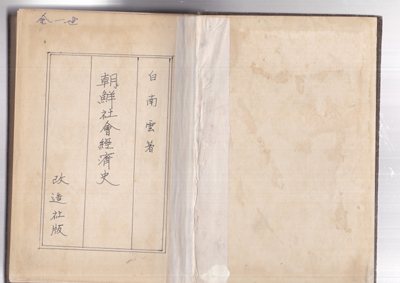 白南雲著
朝鮮社會經濟史
改造社版